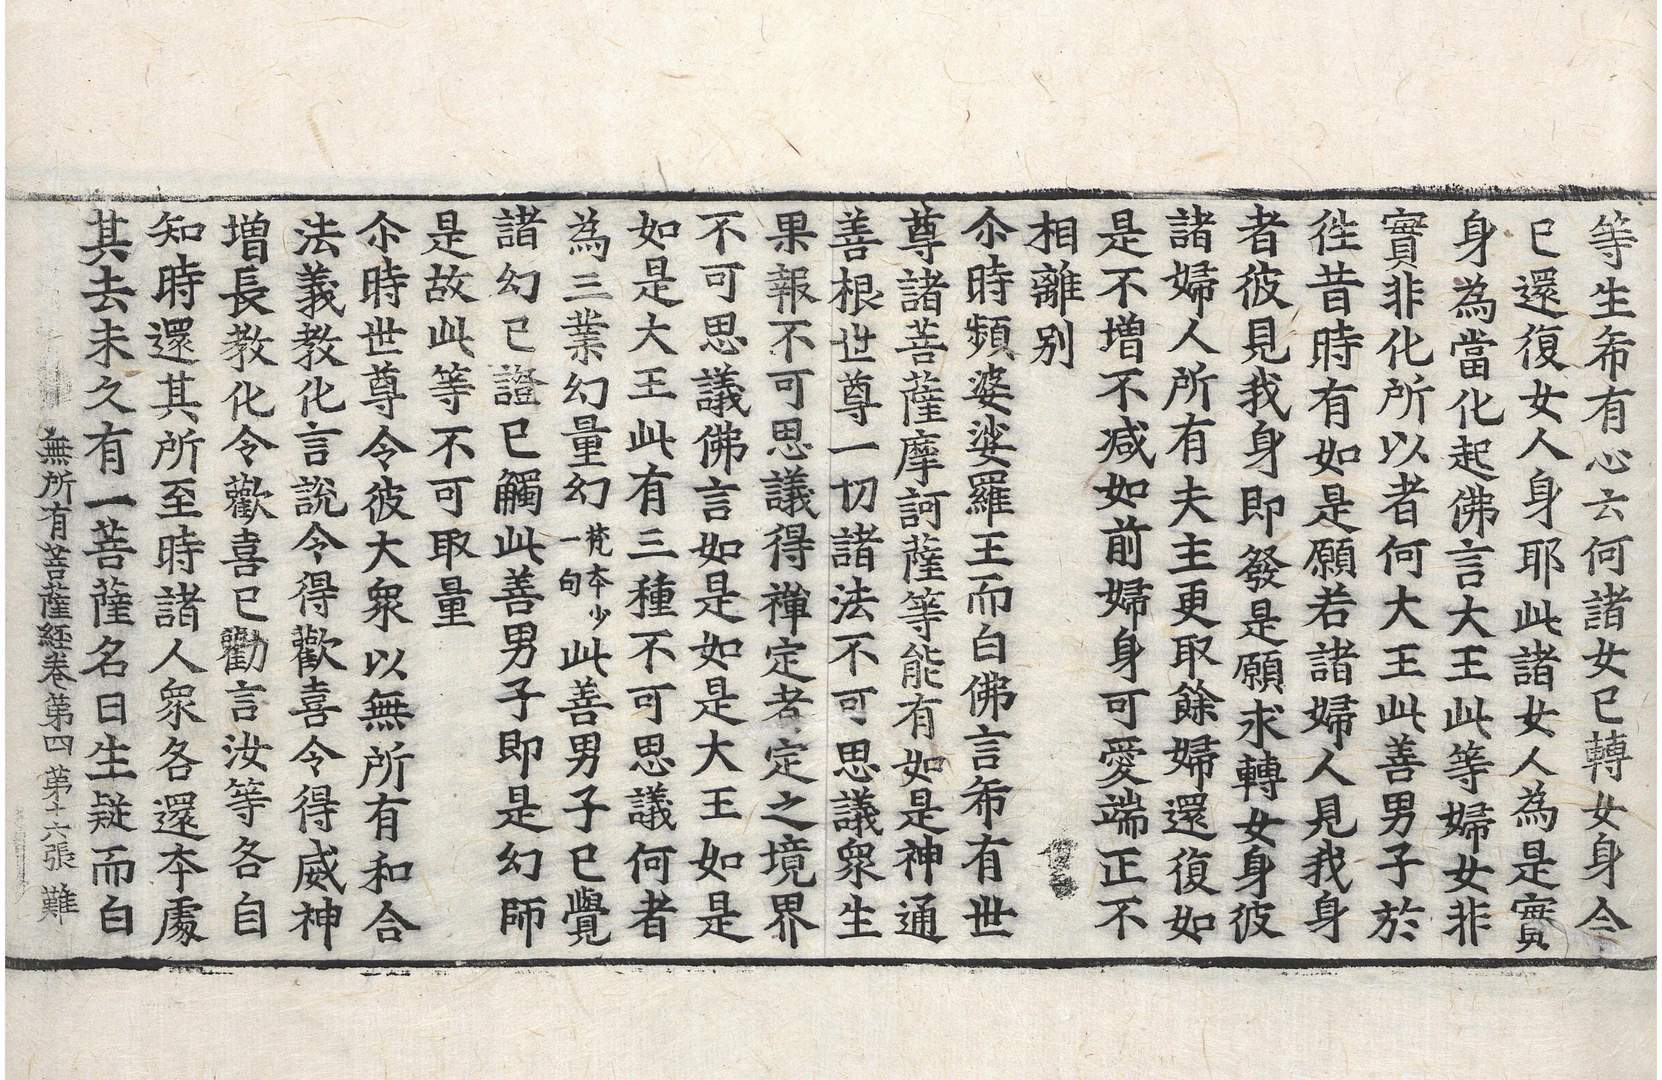 等生希有心云何諸女已轉女身今
已還復女人身耶此諸女人為是實
身為當化起佛言大王此等婦女非
實非化所以者何大王此善男子於
徃昔時有如是願若諸婦人見我身
者彼見我身即發是願求轉女身彼
諸婦人所有夫主更取餘婦還復如
是不增不減如前婦身可愛端正不
相離別
尒時頻婆娑羅王而白佛言希有世
尊諸菩薩摩訶薩等能有如是神通
善根世尊一切諸法不可思議衆生
果報不可思議得禪定者定之境界
不可思議佛言如是如是大王如是
如是大王此有三種不可思議何者
為三業幻量幻梵本少一句此善男子已覺
諸幻已證已觸此善男子即是幻師
是故此等不可取量
尒時世尊令彼大衆以無所有和合
法義教化言說令得歡喜令得威神
增長教化令歡喜已勸言汝等各自
知時還其所至時諸人衆各還本處
其去未久有一菩薩名曰生疑而白
無所有菩薩經卷第四 第十六張 難